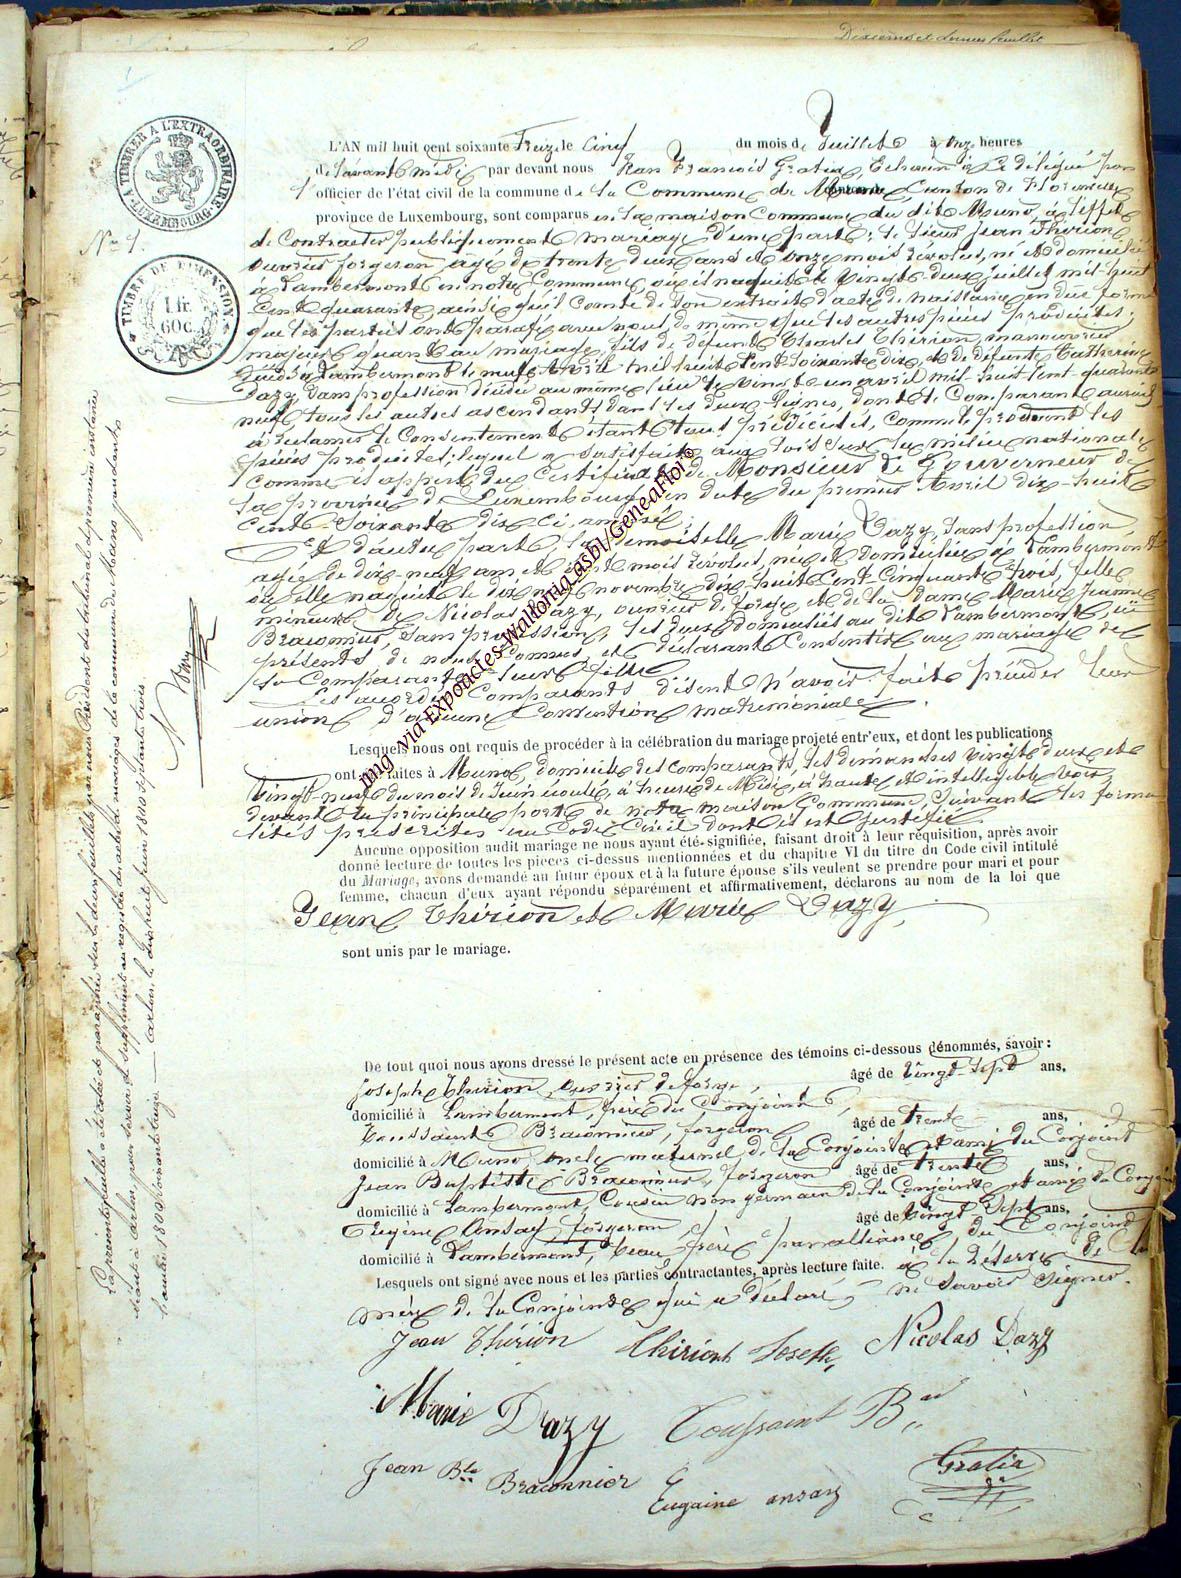 Dixième et dernier feuillet
A TIMBRER A L'EXTRAORDINAIRE
LUXEMBOURG
N° 1.
TIMBRE DE DIMENSION
1 fr.
60 c.
L'AN mil huit cent soixante Treize le Cinq du mois de Juillet à onze heures
de l'avant midi par devant nous Jean François Gratia, Echevin délégué
officier de l'état civil de la commune de la Commune de Muno Canton de Florenville
province de Luxembourg, sont comparus en la maison Commune du dit Muno, à l'effet
de Contracter publiquement mariage d'une part: le sieur Jean Thirion
ouvrier forgeron agé de trente deux ans et onze mois révolus, né et domicilié
à Lambermont en notre Commune où il naquit le vingt deux juillet mil huit
Cent quarante ainsi qu'il conste de son extrait d'acte de naissance en due forme
que les parties ont parafé avec nous, de même que les autres pièces produites;
majeur quant au mariage, fils de défunt Charles Thirion, manouvrier
décédé à Lambermont le neuf Avril mil huit Cent soixante dix, et de défunte Catherine
Dazy, sans profession décédée au même lieu le vingt un avril mil huit Cent quarante
neuf tous les autres ascendants dans les deux lignes, dont le Comparant aurait
à réclamer le Consentement étant tous prédécédés, comme le prouvent les
pièces produites, lequel a satisfait aux lois sur la milice nationale
comme il appert du Certificat de Monsieur le Gouverneur de
la province de Luxembourg en date du premier Avril dix-huit
Cent Soixante dix Ci annexé;
Et d'autre part, la demoiselle Marie Dazy, sans profession,
agée de dix-neuf ans et sept mois révolus, née et domiciliée à Lambermont
où elle naquit le dix neuf novembre dix huit Cent Cinquante trois, fille
mineure de Nicolas Dazy, ouvrier de forge et de la dame Marie Jeanne
Braconnier, sans profession, les deux domiciliés au dit Lambermont, ici
présents, de nous Connus, et déclarant Consentir au mariage de
la Comparante leur fille
Les accordés Comparants disent n'avoir fait précéder leur
union d'aucune Convention matrimoniale.
Lesquels nous ont requis de procéder à la célébration du mariage projeté entr'eux, et dont les publications
ont été faites à Muno, domicile des comparants, les dimanches vingt deux et
vingt-neuf du mois de juin écoulé, à l'heure de Midi, à haute et intelligible voix,
devant la principale porte de notre maison Commune, suivant les forma
lités prescrites au Code Civil dont il est justifié
Aucune opposition audit mariage ne nous ayant été signifiée, faisant droit à leur réquisition, après avoir
donné lecture de toutes les pieces ci-dessus mentionnées et du chapitre VI du titre du Code civil intitulé
du Mariage, avons demandé au futur époux et à la future épouse s'ils veulent se prendre pour mari et pour
femme, chacun d'eux ayant répondu séparément et affirmativement, déclarons au nom de la loi que
Jean Thirion et Marie Dazy,
sont unis par le mariage.
De tout quoi nous avons dressé le présent acte en présence des témoins ci-dessous dénommés, savoir:
Joseph Thirion, ouvrier de forge, âgé de vingt-sept ans,
domicilié à Lambermont, frère du Conjoint,
Toussaint Braconnier, forgeron, âgé de trente ans,
domicilié à Muno, oncle maternel de la Conjointe et ami du Conjoint
Jean Baptiste Braconnier, forgeron âgé de trente ans,
domicilié à Lambermont, Cousin non germain de la Conjointe et ami du Conjoint
Eugène Ansay, forgeron, âgé de vingt-sept ans,
domicilié à Lambermont, beau frère par alliance, du Conjoint
Lesquels ont signé avec nous et les parties contractantes, après lecture faite. à la réserve de la
mère de la Conjointe qui a déclaré ne savoir signer.
Jean Thirion Thirion Joseph, Nicolas Dazy
Marie Dazy Toussaint Bnr
Jean Bte Braconnier Eugaine ansay Gratia
La présente feuille a été cotée et paraphée sur les dix feuillets par nous Président du tribunal de première instance
séant à Arlon, pour servir de supplément au registre des actes de mariages de la commune de Muno pendant
l'année 1800 soixante treize. — Arlon, le dix huit juin 1800 septante trois.
pmg via Expoactes-Wallonia asbl/GeneaFloi ©